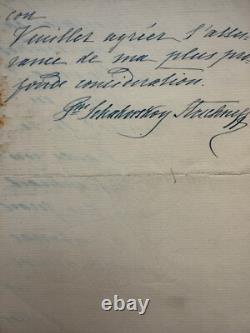 con
Veuillez agréer l'assu-
rance de ma plus pro
fonde considération.
Pss Schahovskoy